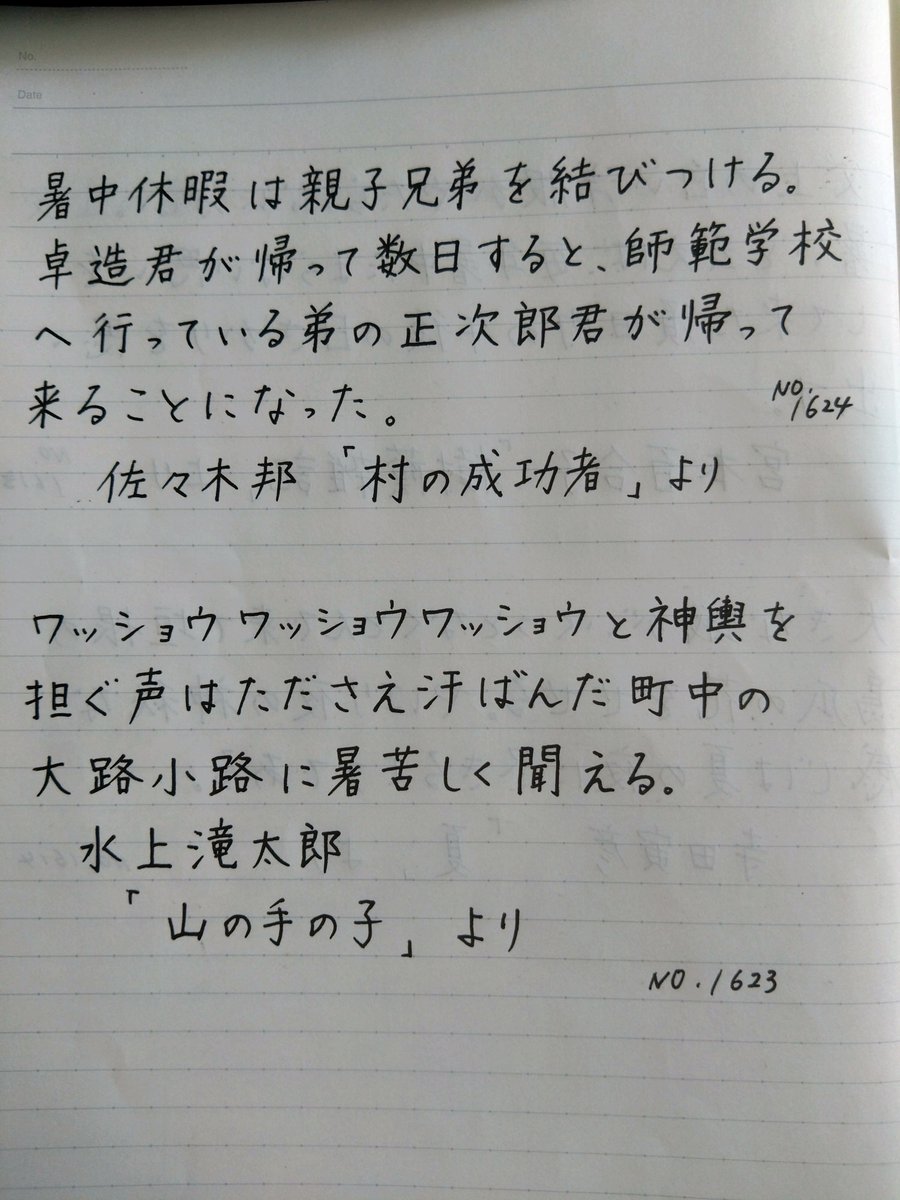 No.
Date
暑中休暇は親子兄弟を結びつける。
卓造君が帰って数日すると、師範学校
へ行っている弟の正次郎君が帰って
来ることになった。
NO.
1624
佐々木邦「村の成功者」より
ワッショウワッショウワッショウと神輿を
担ぐ声はたださえ汗ばんだ町中の
大路小路に暑苦しく聞える。
水上滝太郎
「山の手の子」より
NO.1623